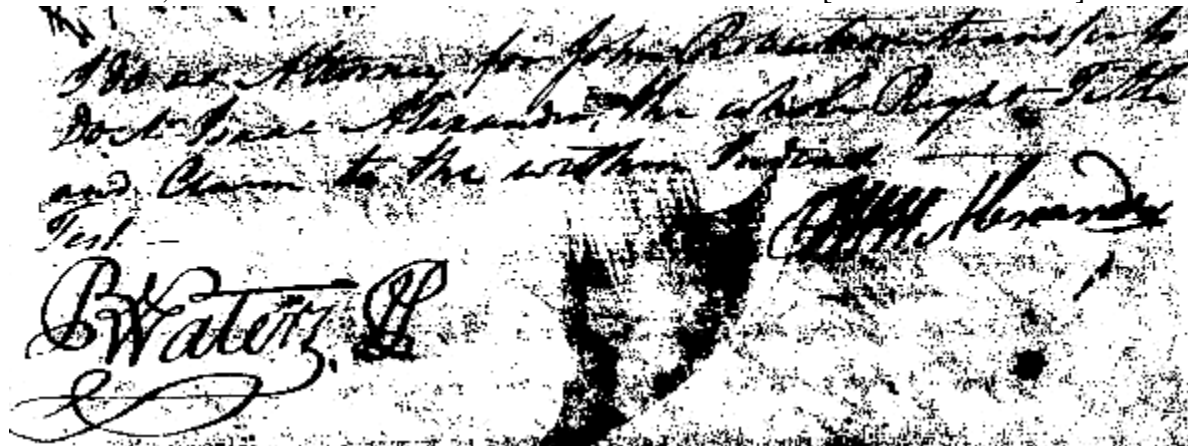 I do as Attorney for John Robertson transfer to
Doctr. Isaac Alexander, the whole Right Title
and Claim to the within Indent
Test.
Alexander
B Waters, JP